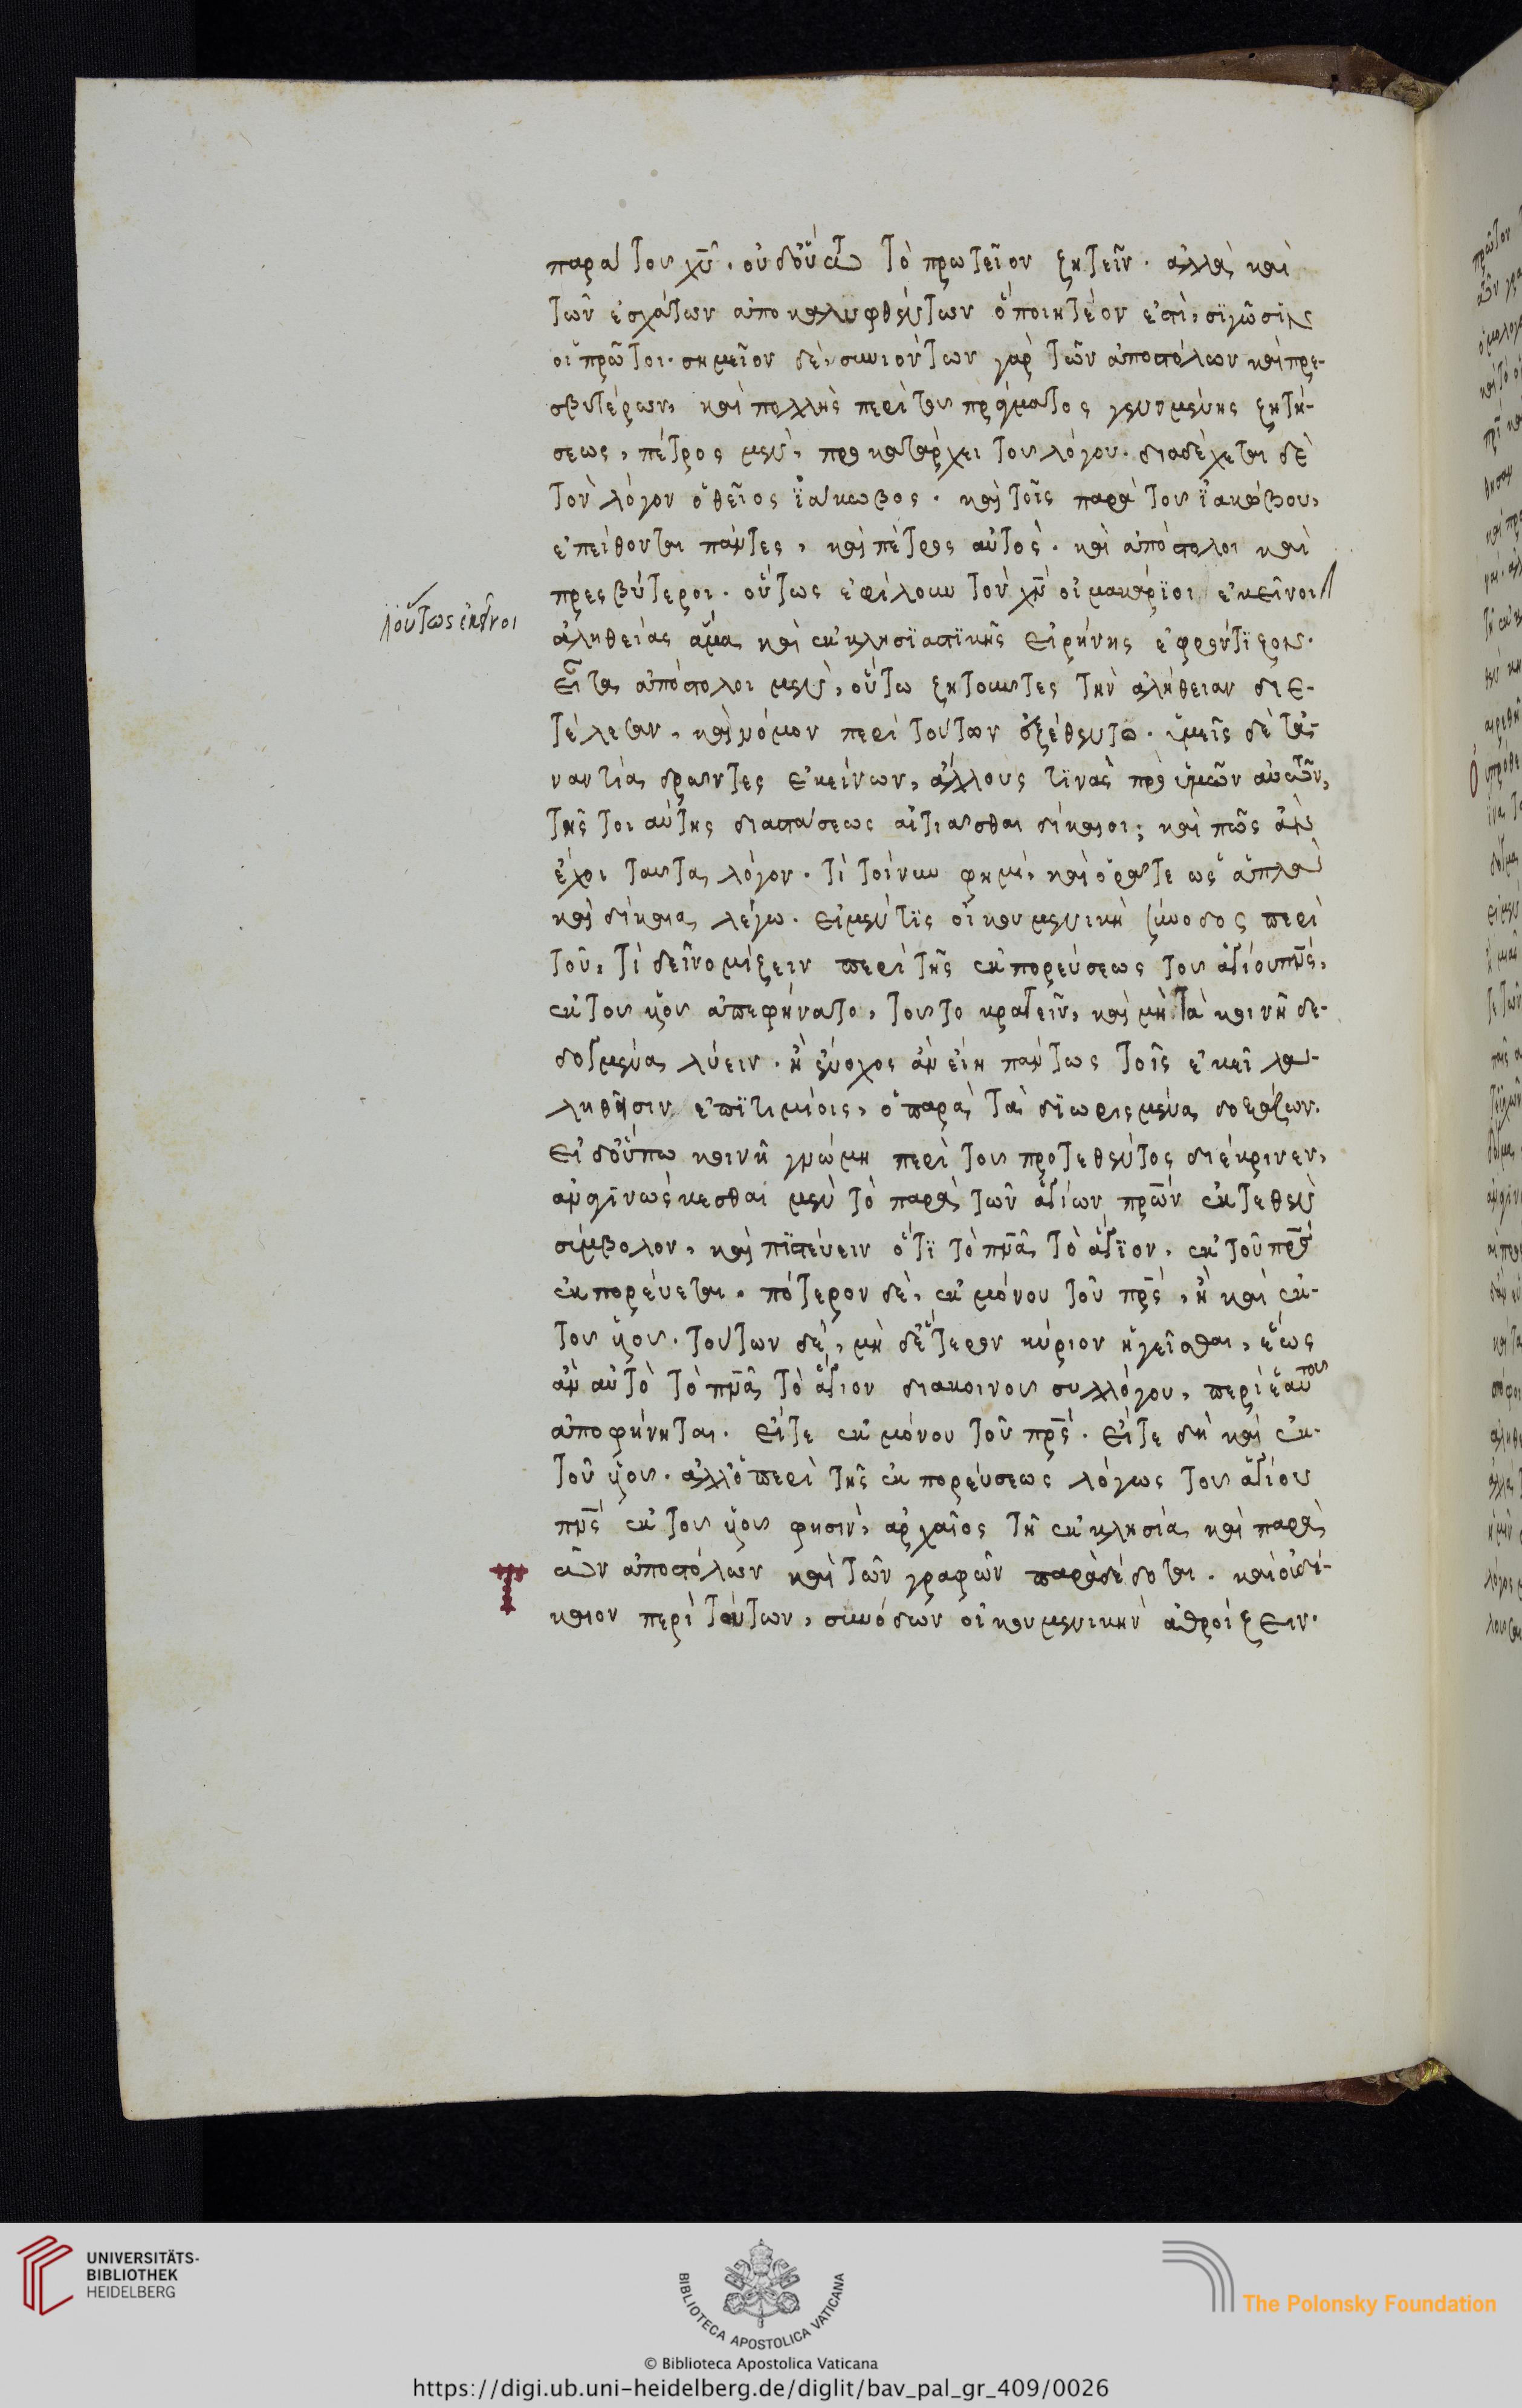 παρὰ τοῦ χῡ. οὐδ' οὕτω τὸ πρωτεῖον ζητεῖν. ἀλλὰ καὶ
τῶν ἐσχάτων ἀποκαλυφθέντων ὃ ποιητέον ἐστὶ, σιγῶσιν
οἱ πρῶτοι. σημεῖον δὲ, συνιόντων γὰρ τῶν ἀποστόλων καὶ πρε-
σβυτέρων, καὶ πολλῆς περὶ τοῦ πράγματος γενομένης ζητή-
σεως, πέτρος μὲν, προκατάρχει τοῦ λόγου. διαδέχεται δὲ
τὸν λόγον ὁ θεῖος ϊάκωβος. καὶ τοῖς παρὰ τοῦ ϊακώβου,
ἐπείθονται πάντες, καὶ πέτρος αὐτὸς. καὶ ἀπόστολοι καὶ
πρεσβύτεροι. οὕτως ἐφίλουν τὸν χν̄ οἱ μακάριοι ἐκεῖνοι
οὕτως ἐκεῖνοι
ἀληθείας ἅμα καὶ ἐκκλησϊαστϊκῆς εἰρήνης ἐφρόντιζον.
εἶτα ἀπόστολοι μὲν, οὕτω ζητοῦντες τὴν ἀλήθειαν διε-
τέλεσαν, καὶ νόμον περὶ τούτων ἐξέθεντο. ὑμεῖς δὲ τἀ-
ναντία δρῶντες ἐκείνων, ἄλλους τϊνὰς πρὸ ὑμῶν αὐτῶν,
τῆς τοιαύτης διαστάσεως αἰτιᾶσθαι δίκαιοι; καὶ πῶς ἂν
ἔχοι ταῦτα λόγον. τί τοίνυν φημὶ, καὶ ὁρᾶτε ὡς ἁπλᾶ
καὶ δίκαια λέγω. εἰ μέν τϊς οἰκουμενικὴ σύνοδος περὶ
τοῦ, τί δεῖ νομίζειν περὶ τῆς ἐκπορεύσεως τοῦ ἁγίου πν̄ς,
ἐκ τοῦ υἱοῦ ἀπεφήνατο, τοῦτο κρατεῖν, καὶ μὴ τὰ κοινῇ δε-
δογμένα λύειν. ἢ ἔνοχος ἂν εἴη πάντως τοῖς ἐκεῖ λα-
ληθεῖσιν ἐπϊτιμίοις, ὁ παρὰ τὰ δϊωρισμένα δοξάζων.
εἰ δ' οὔπω κοινῇ γνώμῃ περὶ τοῦ προτεθέντος διέκρινεν,
ἀναγινώσκεσθαι μὲν τὸ παρὰ τῶν ἁγίων πρω̄ν ἐκτεθὲν
σύμβολον, καὶ πϊστεύειν ὅτϊ τὸ πν̄α τὸ ἅγϊον, ἐκ τοῦ πρ̄ς
ἐκπορεύεται. πότερον δὲ, ἐκ μόνου τοῦ πρ̄ς, ἢ καὶ ἐκ
τοῦ υἱοῦ. τούτων δὲ, μηδέτερον κύριον ἡγεῖσθαι, ἕως
ἂν αὐτὸ τὸ πν̄α τὸ ἅγιον διὰ κοινοῦ συλλόγου, περὶ ἑαυτοῦ
ἀποφήνηται. εἴτε ἐκ μόνου τοῦ πρ̄ς. εἴτε δὴ καὶ ἐκ
τοῦ υἱοῦ. ἀλλ' ὁ περὶ τῆς ἐκπορεύσεως λόγος τοῦ ἁγίου
πν̄ς ἐκ τοῦ υἱοῦ φησὶν, ἀρχαῖος τῇ ἐκκλησίᾳ καὶ παρὰ
τῶν ἀποστόλων καὶ τῶν γραφῶν παραδέδοται. καὶ οὐ δί-
καιον περὶ τούτων, σύνοδον οἰκουμενικὴν ἀθροίζειν.
UNIVERSITÄTS-
BIBLIOTHEK
HEIDELBERG
BIBLIOTECA APOSTOLICA VATICANA
The Polonsky Foundation
© Biblioteca Apostolica Vaticana
https://digi.ub.uni-heidelberg.de/diglit/bav_pal_gr_409/0026